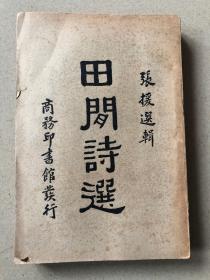 張援選輯
田間詩選
商務印書館發行